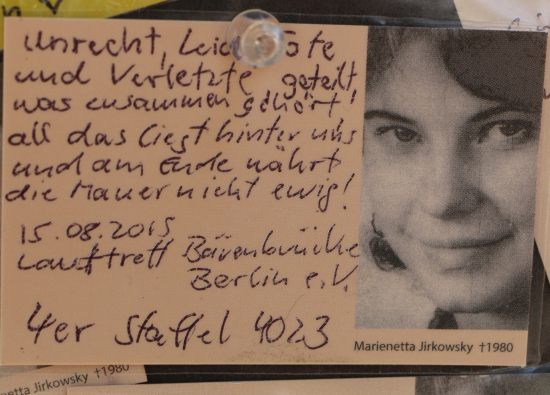 Unrecht, Leid Tote
und Verletzte geteilt
was zusammen gehört!
all das liegt hinter uns
und am Ende währt
die Mauer nicht ewig!
15.08.2015
Lauftreff Bärenbrücke
Berlin e.V.
4er Staffel 4023
Marienetta Jirkowsky †1980
netta Jirkowsky †1980